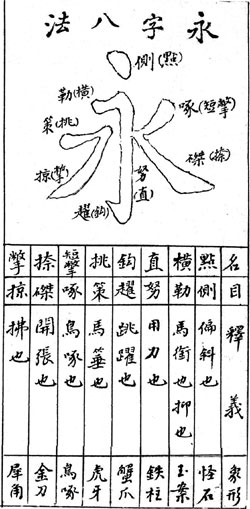 永字八法
永
側(點)
勒(橫)
啄(短撇)
策(挑)
磔(捺)
掠(撇)
努(直)
趯(鈎)
名目 釋義 象形
點側 偏斜也 怪石
橫勒 馬銜也抑也 玉案
直努 用力也 鉄柱
鈎趯 跳躍也 蟹爪
挑策 馬箠也 虎牙
短撇啄 鳥啄也 鳥啄
捺磔 開張也 金刀
撇掠 拂也 犀角